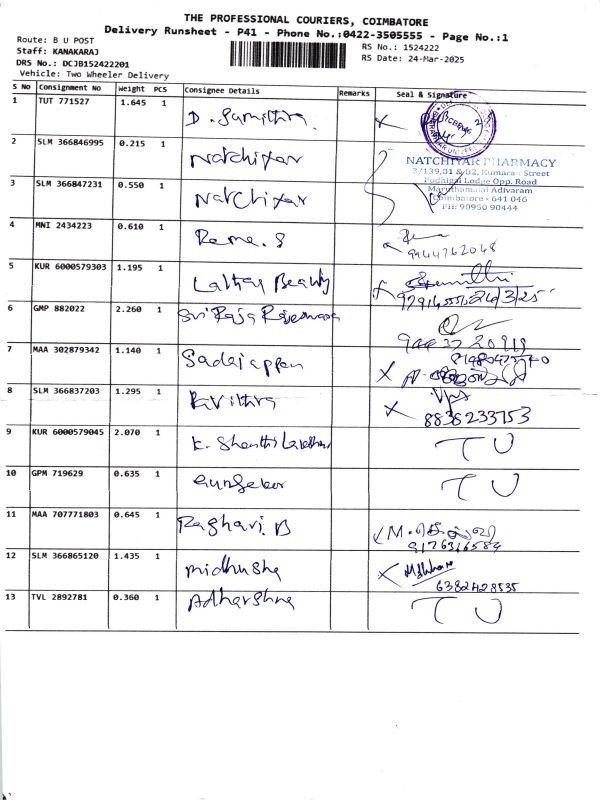 THE PROFESSIONAL COURIERS, COIMBATORE
Delivery Runsheet - P41 - Phone No.:0422-3505555 - Page No.:1
Route: B U POST
RS No.: 1524222
Staff: KANAKARAJ
RS Date: 24-Mar-2025
DRS No.: DCJB152422201
Vehicle: Two Wheeler Delivery
S No Consignment No Weight PCS Consignee Details Remarks Seal & Signature
1 TUT 771527 1.645 1 D. Sumithra
2 SLM 366846995 0.215 1 Natchiyar
NATCHIYAR PHARMACY
3/139,01 & B2, Kumara - Street
Pudhigai Lodge Opp. Road
Maruthamalai Adivaram
Coimbatore - 641 046
PH: 90950 90444
3 SLM 366847231 0.550 1 Natchiyar
4 MNI 2434223 0.610 1 Rama. S
9944762048
5 KUR 6000579303 1.195 1 Lathay Beauty
24/3/25
6 GMP 882022 2.260 1 Sri Raja Rajeswari
7 MAA 302879342 1.140 1 Sadaiappan
8 SLM 366837203 1.295 1 Kavithra
8838233753
9 KUR 6000579045 2.070 1 K. Shanthi T U
10 GPM 719629 0.635 1 Gunasekar T U
11 MAA 707771803 0.645 1 Raghavi. B
9176316584
12 SLM 366865120 1.435 1 midhusha
6382428535
13 TVL 2892781 0.360 1 Adharshna T U